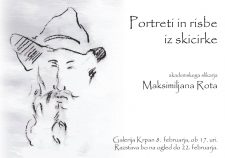 Portreti in risbe
iz skicirke
akademskega slikarja
Maksimiljana Rota
Galerija Krpan 8. februarja, ob 17. uri.
Razstava bo na ogled do 22. februarja.